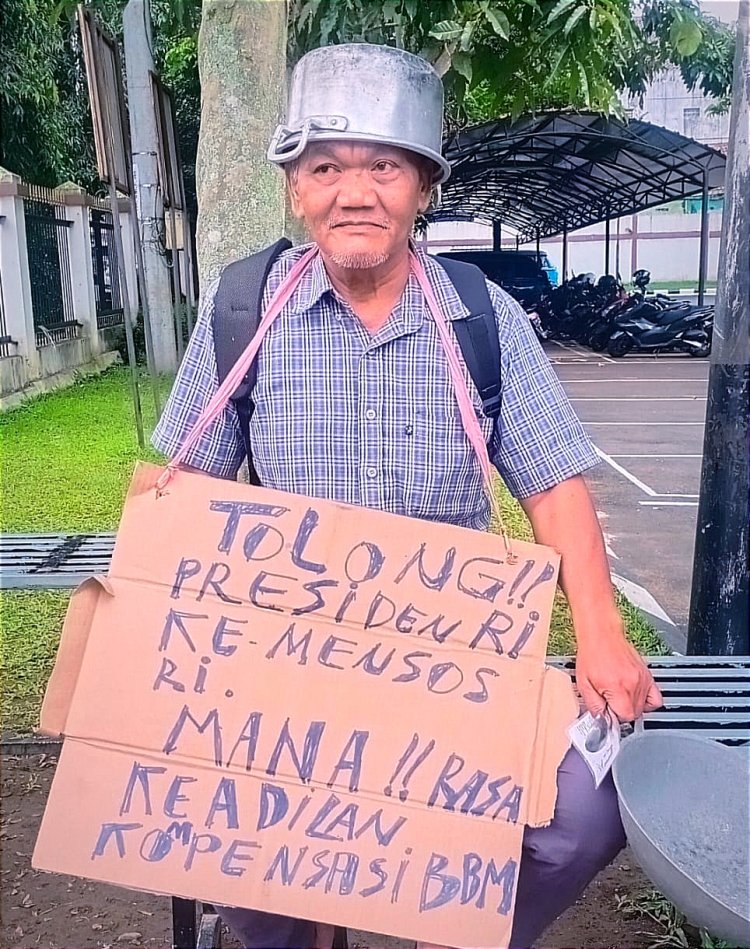 TOLONG!!
PRESIDEN RI
KE-MENSOS
RI.
MANA!! RASA
KEADILAN
KOMPENSASI BBM